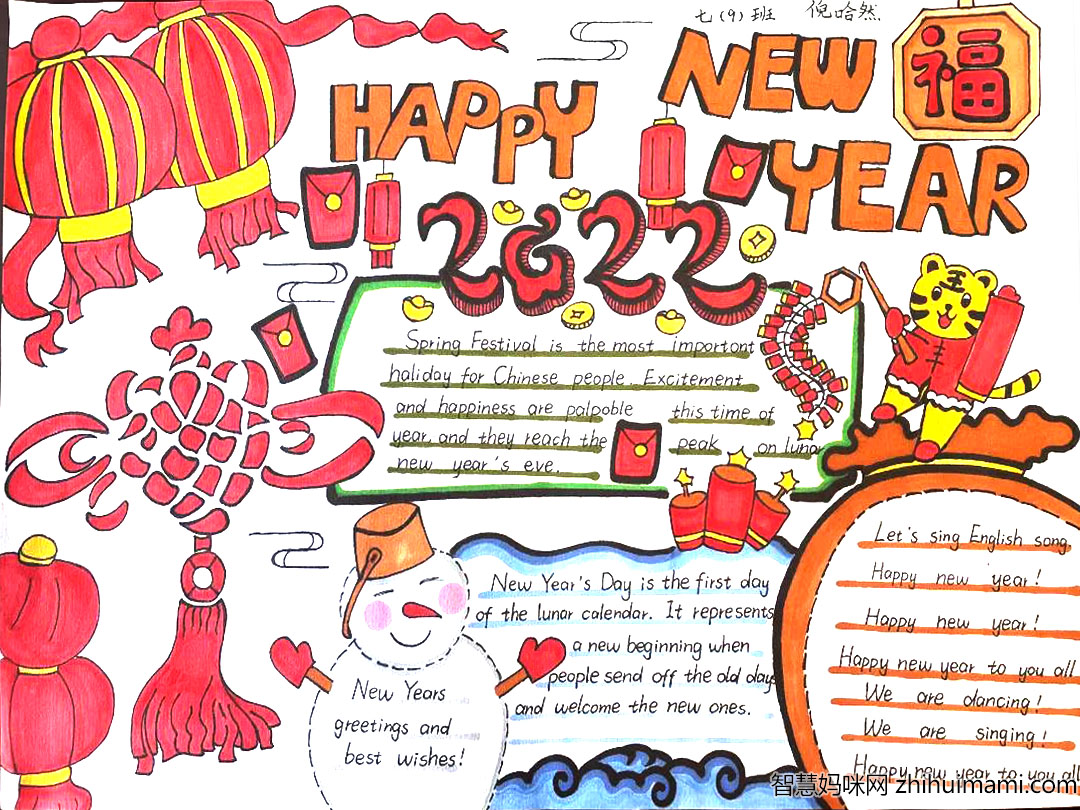 七(9)班 倪哈然
HAPPY NEW YEAR
福
2022
王
Spring Festival is the most important
haliday for Chinese people. Excitement
and happiness are palpoble this time of
year and they reach the peak, on lunar
new year's eve.
New Year's Day is the first day
of the lunar calendar. It represents
a new beginning when
people send off the old days
and welcome the new ones.
New Years
greetings and
best wishes!
Let's sing English song
Happy new year!
Happy new year!
Happy new year to you all
We are dancing!
We are singing!
Happy new year to you all
智慧妈咪网 zhihuimami.com